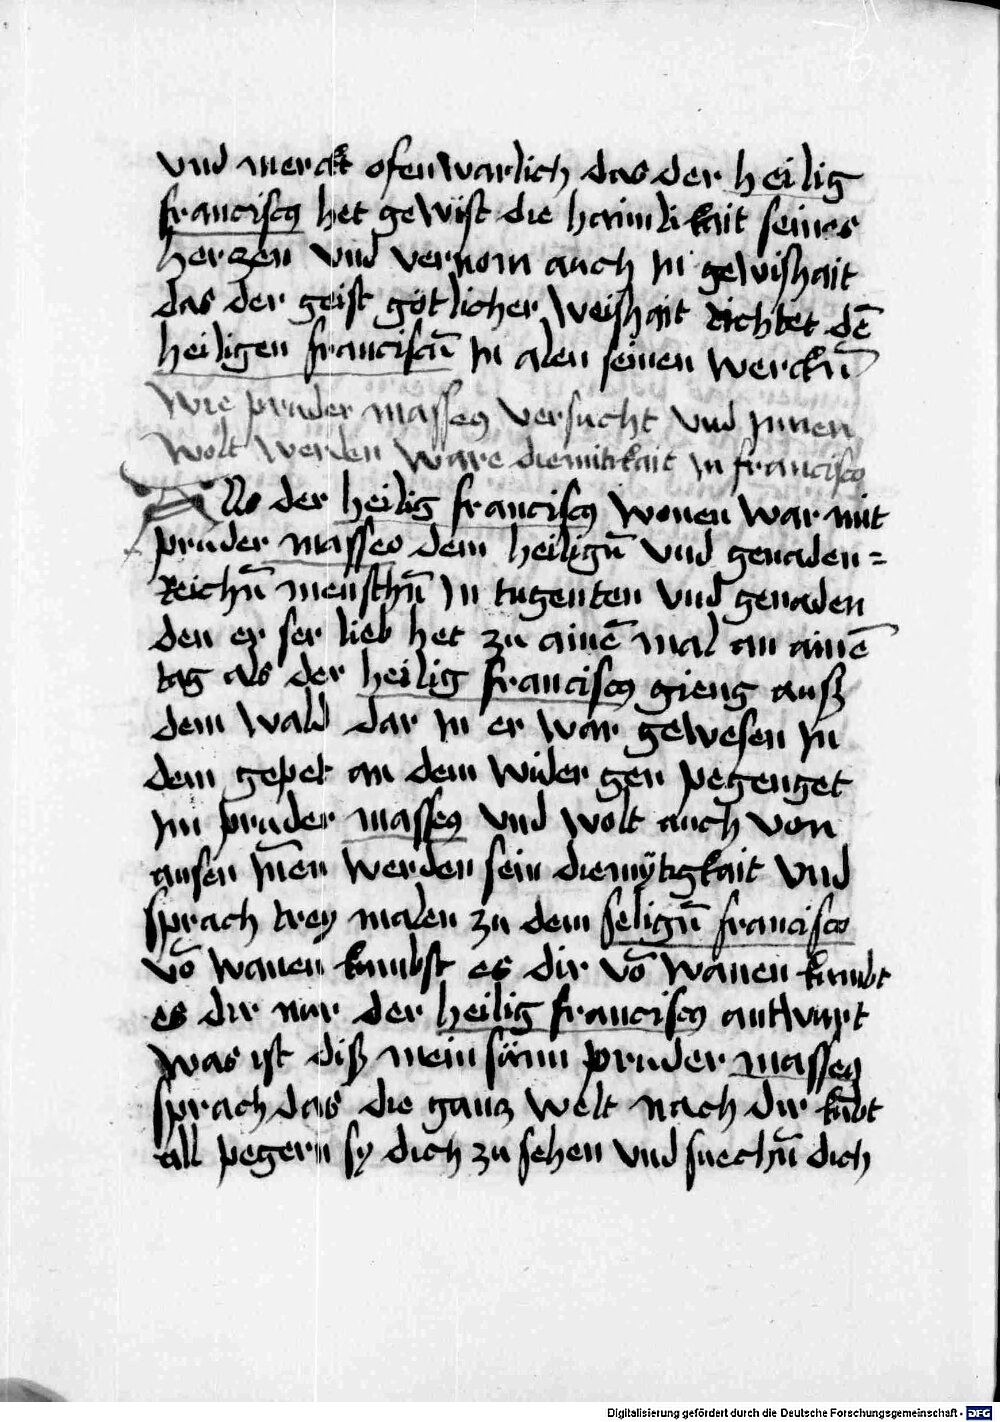 vnd merckt ofenwarlich das der heilig
franciscꝰ het gewist die haimlikait seines
herczen vnd vernom auch jn gewishait
das der geist götlicher weishait richtet dē
heiligen franciscū jn alen seinen werckn̄
wie pruder masseꝰ versucht vnd jnnen
wolt werden ware diemütikait jn francisco
Als der heilig franciscꝰ wonen war mit
pruder masseo dem heilign̄ vnd genaden=
reichn̄ menschn̄ jn tugenten vnd genaden
den er ser lieb het zu ainē mal an ainē
tag als der heilig franciscꝰ gieng auß
dem wald dar jn er war gewesen jn
dem gepet an dem wider gen pegenget
jm pruder masseꝰ vnd wolt auch von
ausen jn̄en werden sein diemütigkait vnd
sprach trey malen zu dem selign̄ francisco
vō wanen kumbst es dir vō wanen kumbt
es dir nur der heilig franciscꝰ antwurt
was ist diß mein sünn pruder masseꝰ
sprach das die gancz welt nach dir kūbt
all pegern sy dich zu sehen vnd suechn̄ dich
Digitalisierung gefördert durch die Deutsche Forschungsgemeinschaft - DFG